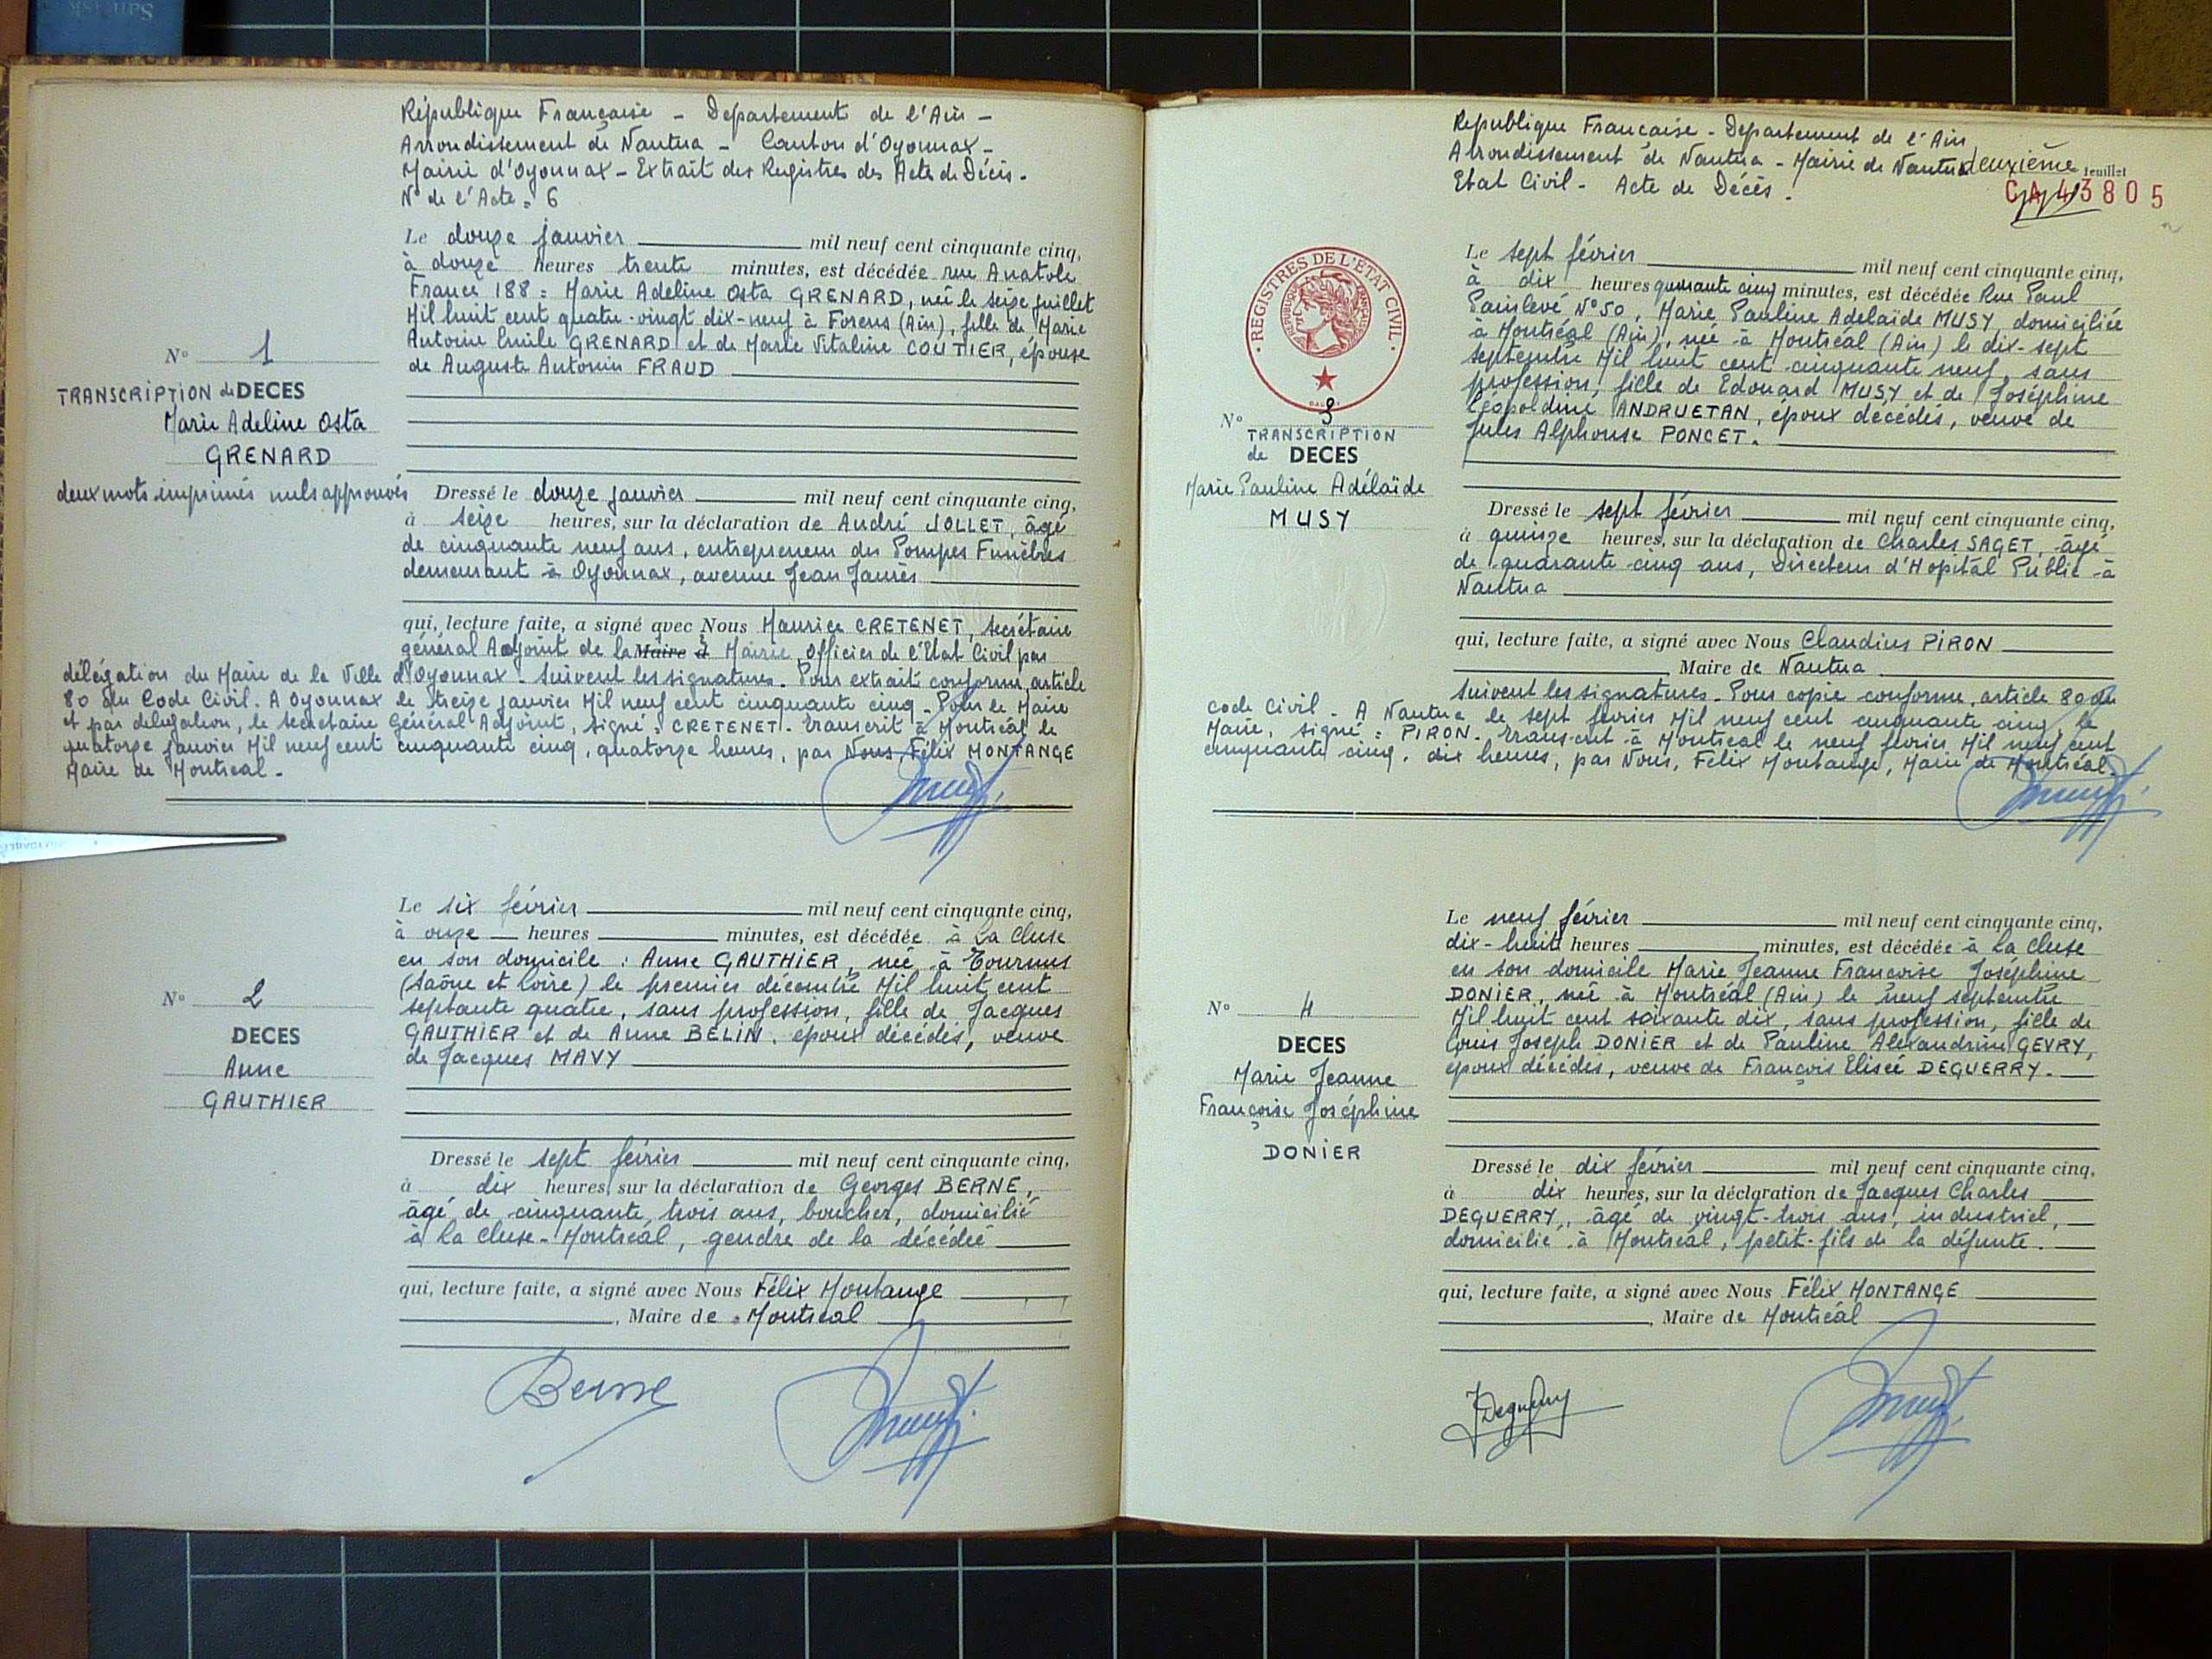 République Française - Departement de l'Ain -
Arrondissement de Nantua - Canton d'Oyonnax -
Mairie d'Oyonnax - Extrait des Registres des Actes de Décès -
N° de l'Acte = 6
Le douze janvier mil neuf cent cinquante cinq,
à douze heures trente minutes, est décédée rue Anatole
France 188 = Marie Adeline Osta GRENARD, née le seize juillet
Mil huit cent quatre-vingt dix-neuf à Forens (Ain), fille de Marie
Antoine Emile GRENARD et de Marie Vitaline COUTIER, épouse
de Auguste Antonin FRAUD
N° 1
TRANSCRIPTION de DECES
Marie Adeline Osta
GRENARD
deux mots imprimés nuls approuvés
Dressé le douze janvier mil neuf cent cinquante cinq,
à seize heures, sur la déclaration de André JOLLET, âgé
de cinquante neuf ans, entrepreneur des Pompes Funèbres
demeurant à Oyonnax, avenue Jean Jaurès
qui, lecture faite, a signé avec Nous Maurice CRETENET, secrétaire
général Adjoint de la Maire d Mairie, Officier de l'Etat Civil par
délégation du Maire de la Ville d'Oyonnax - Suivent les signatures. Pour extrait conforme, article
80 du Code Civil. A Oyonnax le treize janvier Mil neuf cent cinquante cinq - Pour le Maire
et par délégation, le secrétaire Général Adjoint, signé = CRETENET - transcrit à Montréal le
quatorze janvier Mil neuf cent cinquante cinq, quatorze heures, par Nous, Félix MONTANGE
Maire de Montréal -
Le six février mil neuf cent cinquante cinq,
à onze heures minutes, est décédée à La Cluse
en son domicile : Anne GAUTHIER, née à Tournus
(Saône et Loire) le premier décembre Mil huit cent
septante quatre, sans profession, fille de Jacques
GAUTHIER et de Anne BELIN, époux décédés, veuve
de Jacques MAVY
N° 2
DECES
Anne
GAUTHIER
Dressé le sept février mil neuf cent cinquante cinq,
à dix heures, sur la déclaration de Georges BERNE,
âgé de cinquante trois ans, boucher, domicilié
à La Cluse-Montréal, gendre de la décédée
qui, lecture faite, a signé avec Nous Félix Montange
, Maire de Montréal
Berne
République Française - Departement de l'Ain
Arrondissement de Nantua - Mairie de Nantua
Etat Civil - Acte de Décès.
deuxième feuillet
CA 43805
REGISTRES DE L'ETAT CIVIL
Le sept février mil neuf cent cinquante cinq,
à dix heures quarante cinq minutes, est décédée Rue Paul
Painlevé N° 50, Marie Pauline Adelaïde MUSY, domiciliée
à Montréal (Ain), née à Montréal (Ain) le dix-sept
septembre Mil huit cent cinquante neuf, sans
profession, fille de Edouard MUSY et de Joséphine
Léopoldine ANDRUETAN, époux décédés, veuve de
Jules Alphonse PONCET.
N° 3
TRANSCRIPTION
de DECES
Marie Pauline Adélaïde
MUSY
Dressé le sept février mil neuf cent cinquante cinq,
à quinze heures, sur la déclaration de Charles SAGET, âgé
de quarante cinq ans, Directeur d'Hopital Public à
Nantua
qui, lecture faite, a signé avec Nous Claudius PIRON
, Maire de Nantua
Suivent les signatures - Pour copie conforme, article 80 du
code Civil - A Nantua le sept février Mil neuf cent cinquante cinq, le
Maire, signé = PIRON - transcrit à Montréal le neuf février Mil neuf cent
cinquante cinq, dix heures, par Nous, Félix Montange, Maire de Montréal.
Le neuf février mil neuf cent cinquante cinq,
dix-huit heures minutes, est décédée à La Cluse
en son domicile Marie Jeanne Françoise Joséphine
DONIER, née à Montréal (Ain) le neuf septembre
Mil huit cent soixante dix, sans profession, fille de
Louis Joseph DONIER et de Pauline Alexandrine GEVRY,
époux décédés, veuve de François Elisée DEGUERRY.
N° 4
DECES
Marie Jeanne
Françoise Joséphine
DONIER
Dressé le dix février mil neuf cent cinquante cinq,
à dix heures, sur la déclaration de Jacques Charles
DEGUERRY, âgé de vingt-trois ans, industriel,
domicilié à Montréal, petit-fils de la défunte.
qui, lecture faite, a signé avec Nous Félix MONTANGE
, Maire de Montréal
JDeguerry